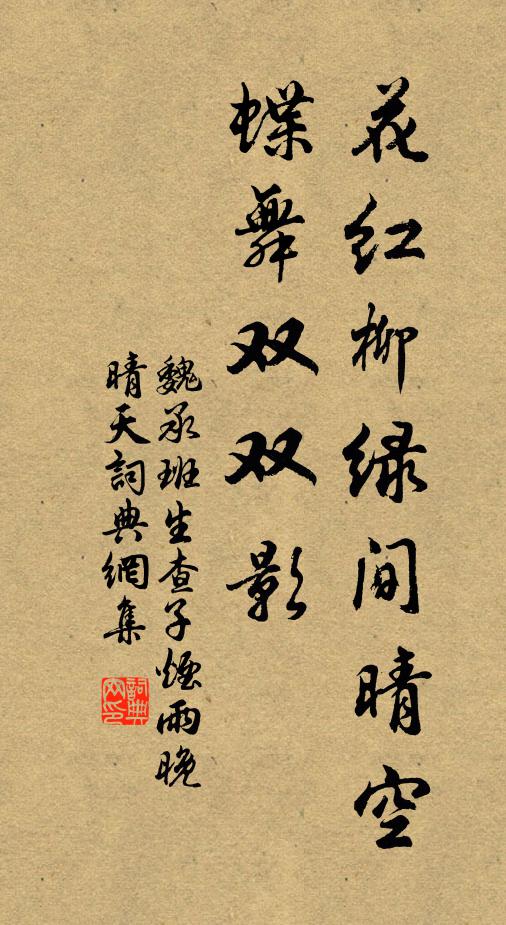 花红柳绿间晴空
蝶舞双双影
魏承班生查子煙雨晚
晴天詞典網集
詞典
网印